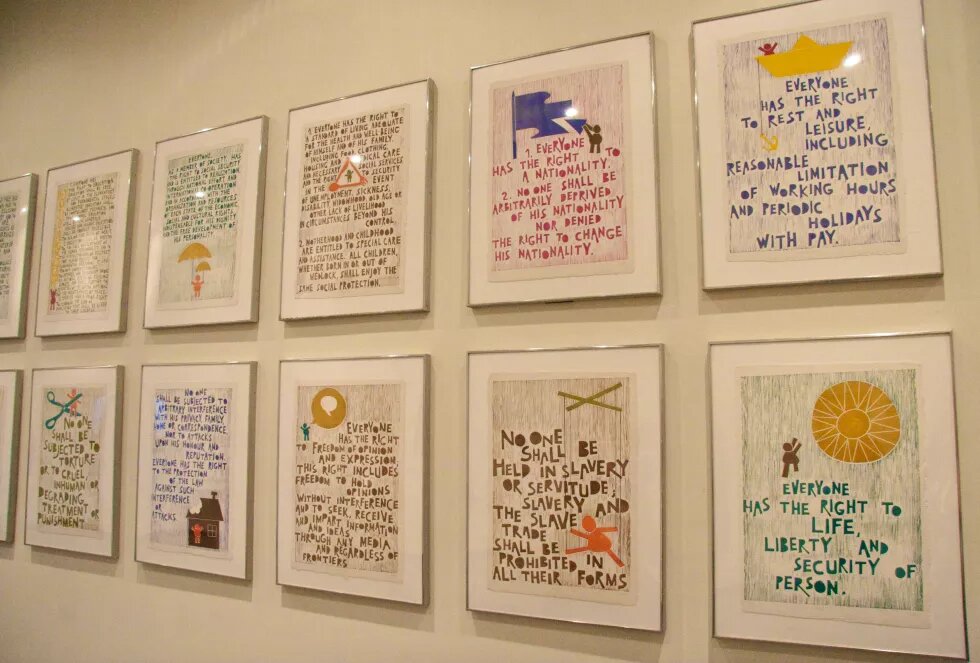 EVERYONE,
AS A MEMBER OF SOCIETY, HAS
THE RIGHT TO SOCIAL SECURITY
AND IS ENTITLED TO REALIZATION,
THROUGH NATIONAL EFFORT AND
INTERNATIONAL CO-OPERATION
AND IN ACCORDANCE WITH THE
ORGANIZATION AND RESOURCES
OF EACH STATE, OF THE ECONOMIC,
SOCIAL AND CULTURAL RIGHTS,
INDISPENSABLE FOR HIS DIGNITY
AND THE FREE DEVELOPMENT OF
HIS PERSONALITY.
1. EVERYONE HAS THE RIGHT TO
A STANDARD OF LIVING ADEQUATE
FOR THE HEALTH AND WELL BEING
OF HIMSELF AND OF HIS FAMILY
INCLUDING FOOD, CLOTHING,
HOUSING AND MEDICAL CARE
AND NECESSARY SOCIAL SERVICES
AND THE RIGHT TO SECURITY
IN THE EVENT
OF UNEMPLOYMENT, SICKNESS,
DISABILITY, WIDOWHOOD, OLD AGE OR
OTHER LACK OF LIVELIHOOD
IN CIRCUMSTANCES BEYOND HIS
CONTROL.
2. MOTHERHOOD AND CHILDHOOD
ARE ENTITLED TO SPECIAL CARE
AND ASSISTANCE. ALL CHILDREN,
WHETHER BORN IN OR OUT OF
WEDLOCK, SHALL ENJOY THE
SAME SOCIAL PROTECTION.
1. EVERYONE
HAS THE RIGHT TO
A NATIONALITY.
2. NO ONE SHALL BE
ARBITRARILY DEPRIVED
OF HIS NATIONALITY
NOR DENIED
THE RIGHT TO CHANGE
HIS NATIONALITY.
EVERYONE
HAS THE RIGHT
TO REST AND
LEISURE,
INCLUDING
REASONABLE
LIMITATION
OF WORKING HOURS
AND PERIODIC
HOLIDAYS
WITH PAY.
NO ONE
SHALL BE
SUBJECTED TO
TORTURE
OR TO CRUEL,
INHUMAN OR
DEGRADING
TREATMENT OR
PUNISHMENT.
NO ONE
SHALL BE SUBJECTED TO
ARBITRARY INTERFERENCE
WITH HIS PRIVACY, FAMILY,
HOME OR CORRESPONDENCE,
NOR TO ATTACKS
UPON HIS HONOUR AND
REPUTATION.
EVERYONE HAS THE RIGHT
TO THE PROTECTION
OF THE LAW
AGAINST SUCH
INTERFERENCE
OR
ATTACKS.
EVERYONE
HAS THE RIGHT
TO FREEDOM OF OPINION
AND EXPRESSION;
THIS RIGHT INCLUDES
FREEDOM TO HOLD
OPINIONS
WITHOUT INTERFERENCE
AND TO SEEK, RECEIVE
AND IMPART INFORMATION
AND IDEAS
THROUGH ANY MEDIA
AND REGARDLESS OF
FRONTIERS
NO ONE
SHALL BE
HELD IN SLAVERY
OR SERVITUDE;
SLAVERY AND
THE SLAVE
TRADE
SHALL BE
PROHIBITED IN
ALL THEIR FORMS
EVERYONE
HAS THE RIGHT TO
LIFE,
LIBERTY AND
SECURITY OF
PERSON.